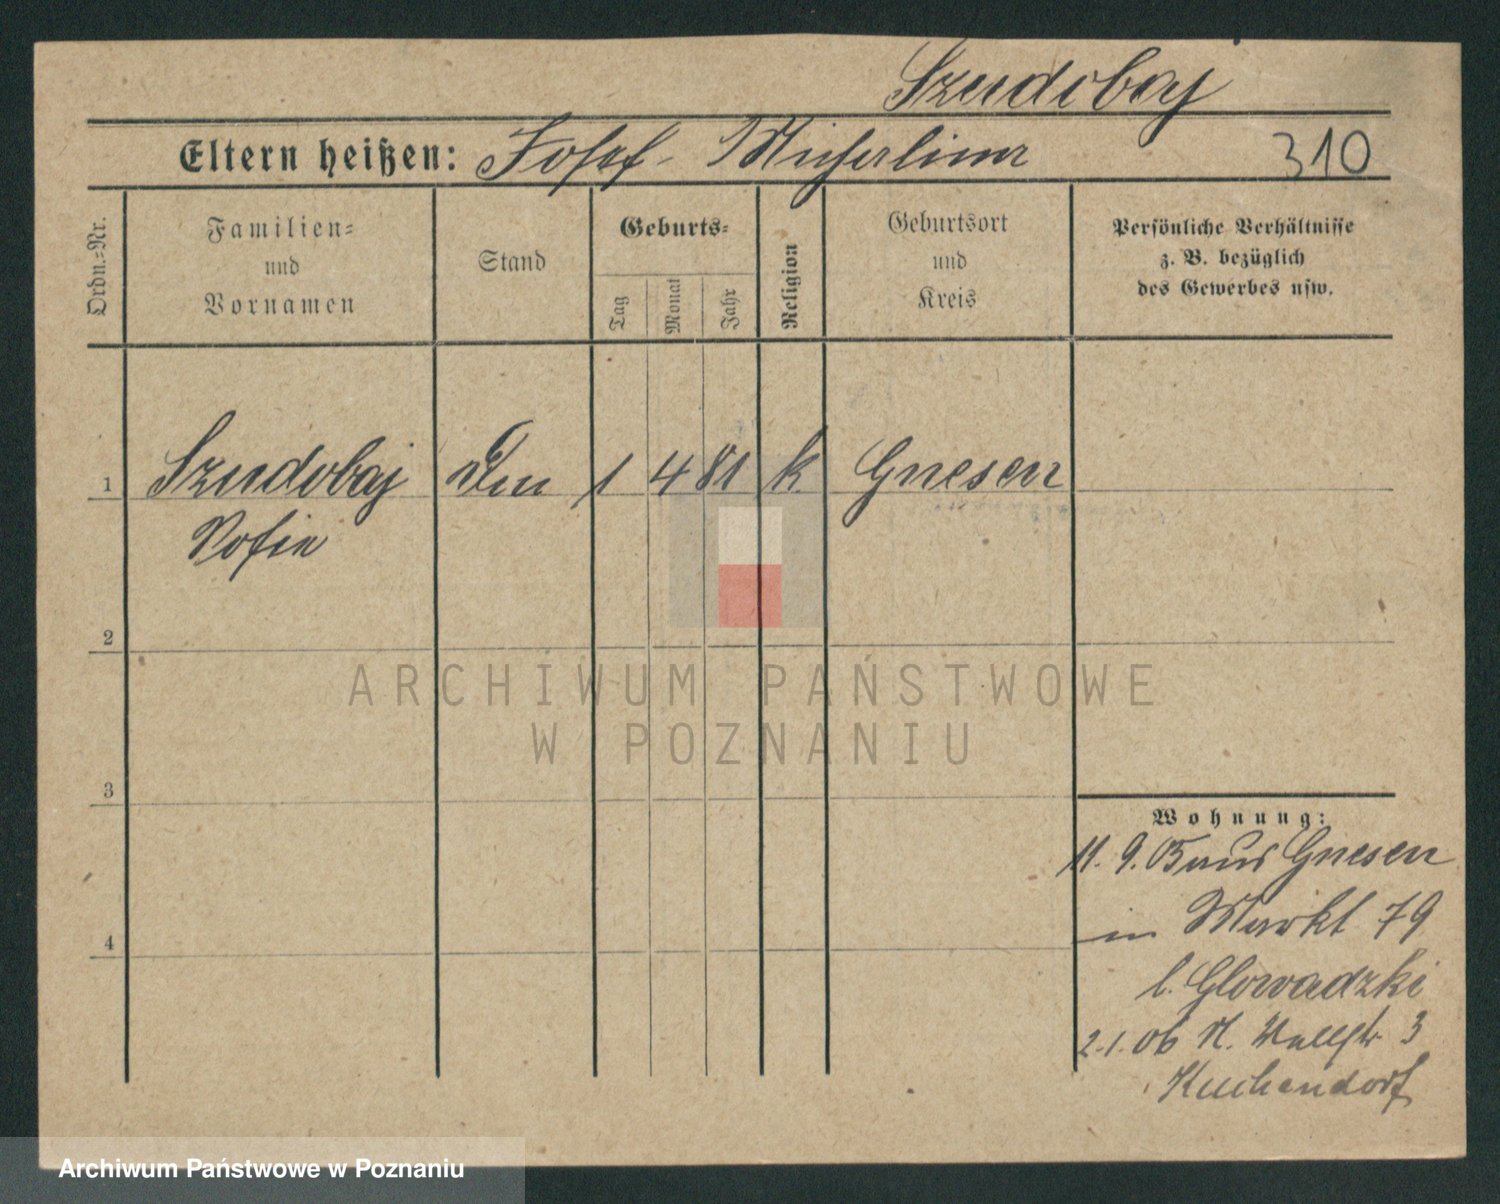 Szudobaj
Eltern heißen: Josef - Michalina 310
Ordn.-Nr.
Familien- und Vornamen
Stand
Geburts-
Tag
Monat
Jahr
Religion
Geburtsort und Kreis
Persönliche Verhältnisse
z. B. bezüglich
des Gewerbes usw.
1 Szudobaj 1 4 81 k. Gnesen
Sofie
2
3
4
Wohnung:
11. 9. 05 aus Gnesen
in Markt 79
b. Glowadzki
2.1.06 N. Wallstr 3
Kuchendorf
ARCHIWUM PAŃSTWOWE
W POZNANIU
Archiwum Państwowe w Poznaniu